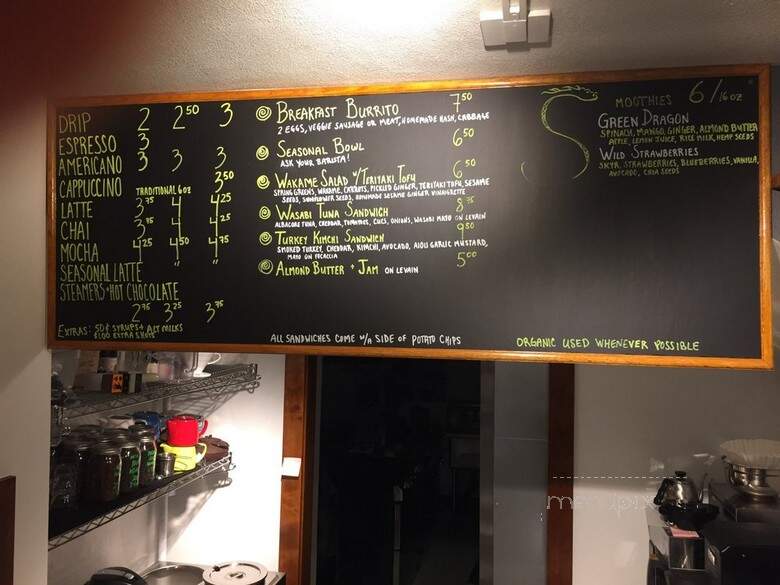 DRIP 2 2.50 3
ESPRESSO 3
AMERICANO 3 3 3
CAPPUCCINO TRADITIONAL 6oz 3.50
LATTE 3.75 4 4.25
CHAI 3.75 4 4.25
MOCHA 4.25 4.50 4.75
SEASONAL LATTE " "
STEAMERS + HOT CHOCOLATE
2.75 3.25 3.75
EXTRAS: 50¢ SYRUPS + ALT MILKS
$1.00 EXTRA SHOT
BREAKFAST BURRITO 7.50
2 EGGS, VEGGIE SAUSAGE OR MEAT, HOMEMADE HASH, CABBAGE
SEASONAL BOWL 6.50
ASK YOUR BARISTA!
WAKAME SALAD W/TERIYAKI TOFU 6.50
SPRING GREENS, WAKAME, CARROTS, PICKLED GINGER, TERIYAKI TOFU, SESAME
SEEDS, SUNFLOWER SEEDS, HOMEMADE SESAME GINGER VINAIGRETTE
WASABI TUNA SANDWICH 8.75
ALBACORE TUNA, CHEDDAR, TOMATOES, CUCS, ONIONS, WASABI MAYO ON LEVAIN
TURKEY KIMCHI SANDWICH 9.50
SMOKED TURKEY, CHEDDAR, KIMCHI, AVOCADO, AIOLI GARLIC MUSTARD,
MAYO ON FOCACCIA
ALMOND BUTTER + JAM ON LEVAIN 5.00
ALL SANDWICHES COME W/A SIDE OF POTATO CHIPS
MOOTHIES 6/16 OZ
GREEN DRAGON
SPINACH, MANGO, GINGER, ALMOND BUTTER
APPLE, LEMON JUICE, RICE MILK, HEMP SEEDS
WILD STRAWBERRIES
SKYR, STRAWBERRIES, BLUEBERRIES, VANILLA,
AVOCADO, CHIA SEEDS
ORGANIC USED WHENEVER POSSIBLE
menupix